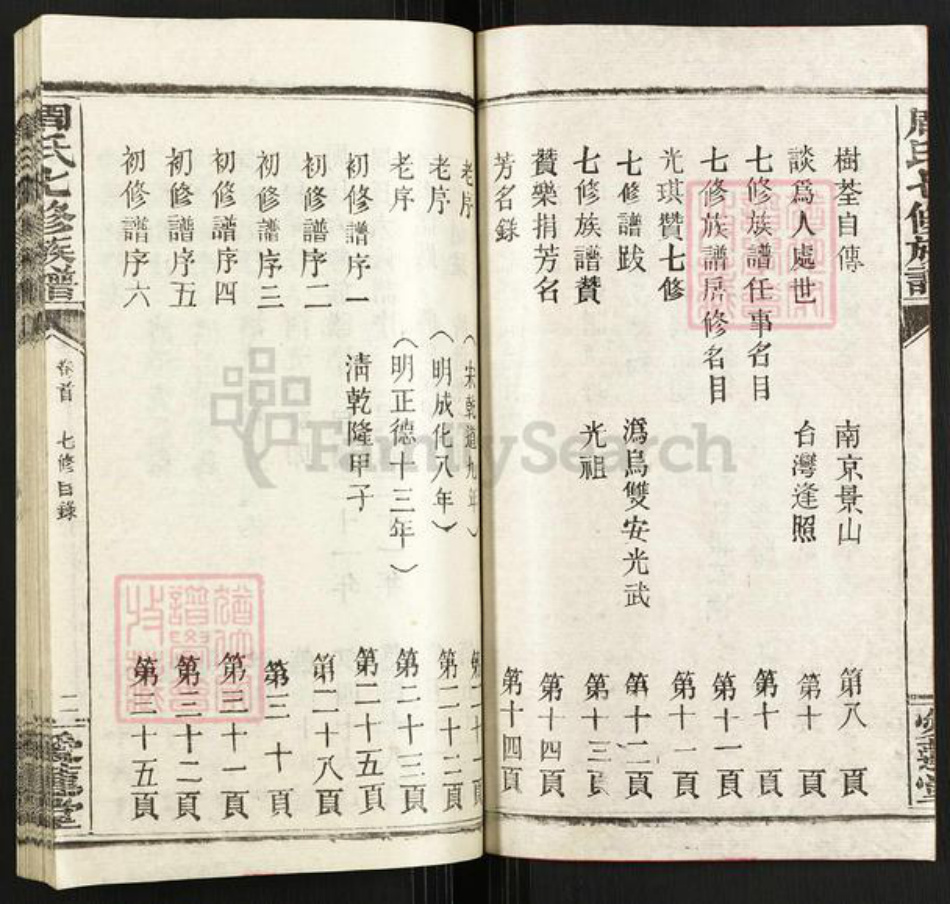 周氏七修族譜
樹荃自傳 南京景山 第八頁
談爲人處世 台灣逢照 第十頁
七修族譜任事名目 第十頁
七修族譜居修名目 第十一頁
光琪贊七修 第十一頁
七修譜跋 潙烏雙安光武 第十二頁
七修族譜贊 光祖 第十三頁
贊樂捐芳名 第十四頁
芳名錄 第十四頁
老序 (宋乾道九年) 第二十一頁
老序 (明成化八年) 第二十二頁
老序 (明正德十三年) 第二十三頁
初修譜序一 清乾隆甲子 第二十五頁
初修譜序二 第二十八頁
初修譜序三 第三十頁
初修譜序四 第三十一頁
初修譜序五 第三十二頁
初修譜序六 第三十五頁
周氏七修族譜
卷首 七修目錄
二
愛蓮堂
FamilySearch